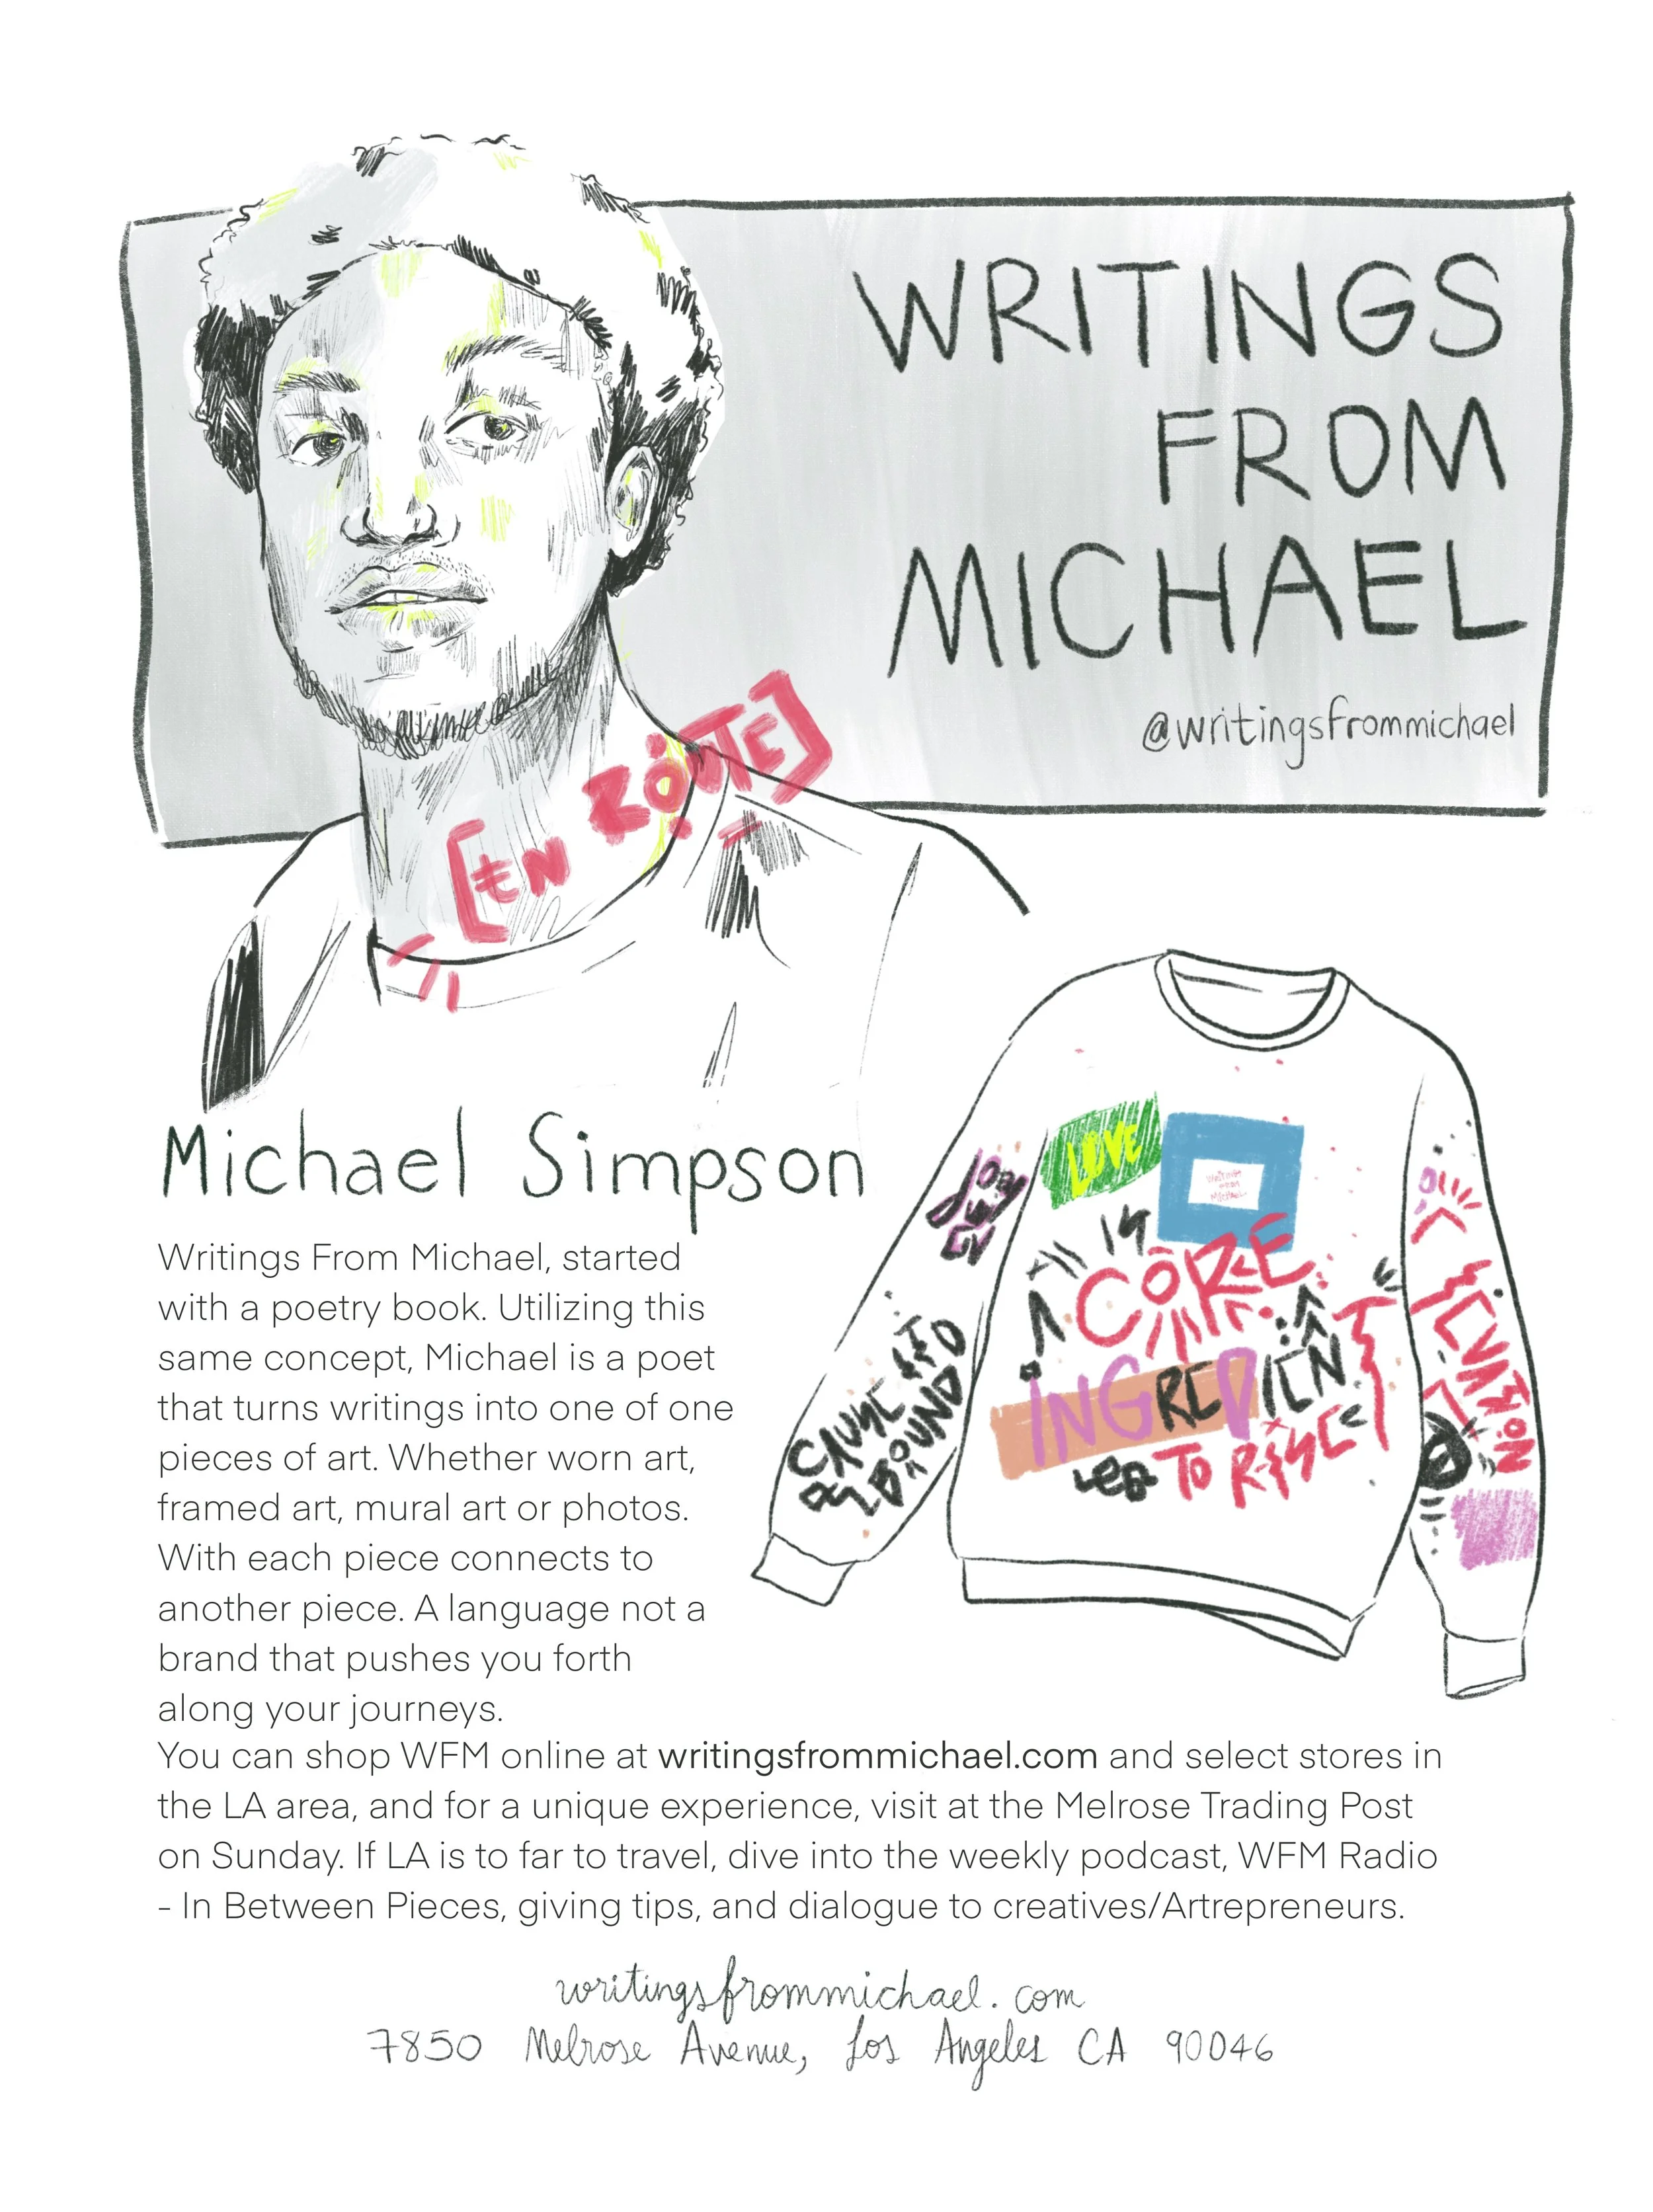 WRITINGS
FROM
MICHAEL
@writingsfrommichael
[EN ROUTE]
Michael Simpson
Writings From Michael, started
with a poetry book. Utilizing this
same concept, Michael is a poet
that turns writings into one of one
pieces of art. Whether worn art,
framed art, mural art or photos.
With each piece connects to
another piece. A language not a
brand that pushes you forth
along your journeys.
LOVE
WRITINGS
FROM
MICHAEL
CORE
INGREDIENT
TO RISE
You can shop WFM online at writingsfrommichael.com and select stores in
the LA area, and for a unique experience, visit at the Melrose Trading Post
on Sunday. If LA is to far to travel, dive into the weekly podcast, WFM Radio
- In Between Pieces, giving tips, and dialogue to creatives/Artrepreneurs.
writingsfrommichael.com
7850 Melrose Avenue, Los Angeles CA 90046